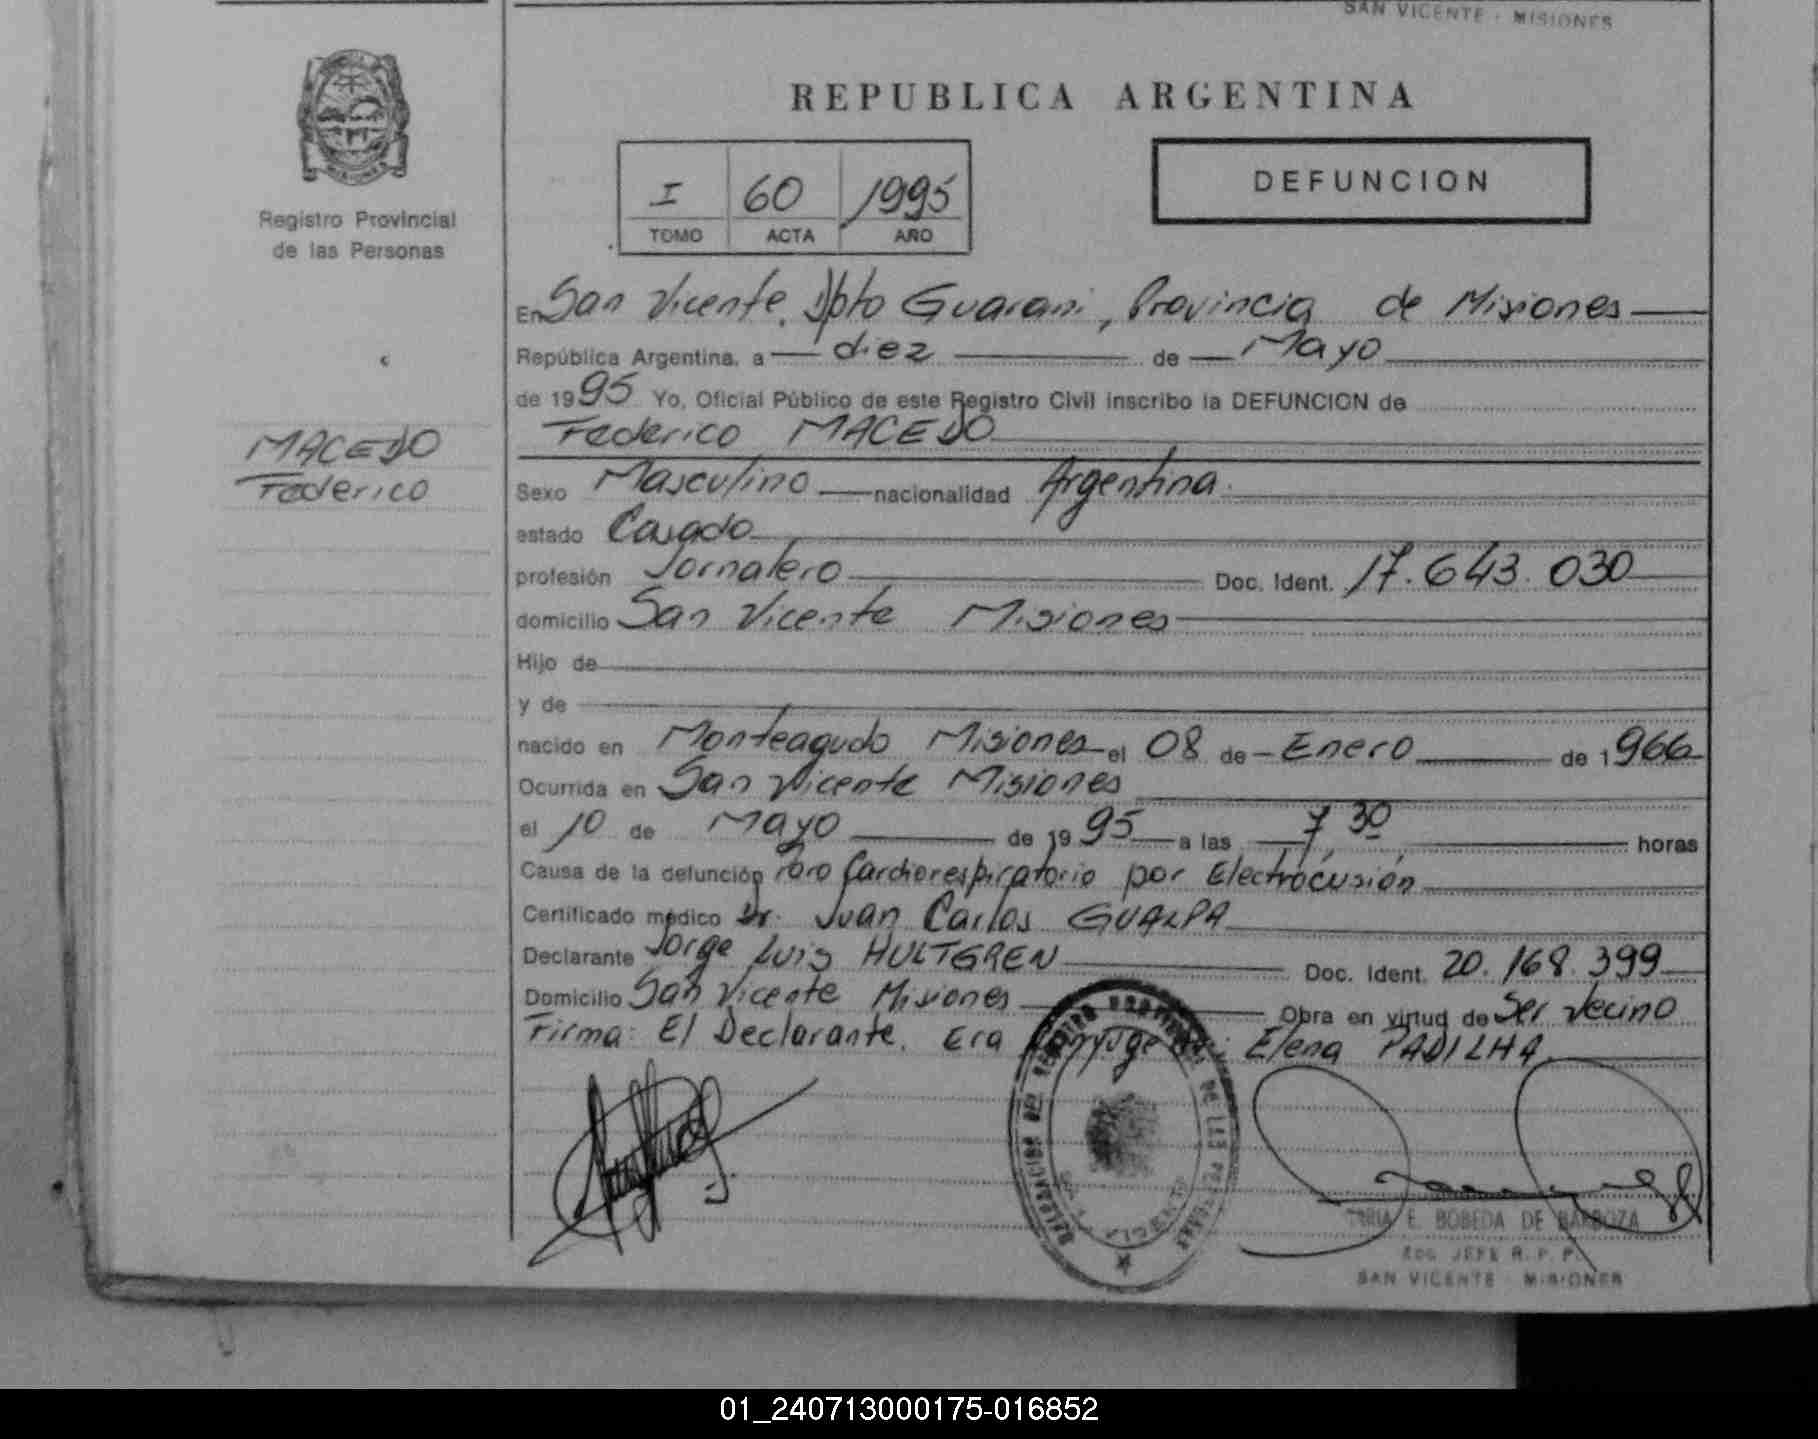 SAN VICENTE - MISIONES
REPUBLICA ARGENTINA
MISIONES
Registro Provincial
de las Personas
I 60 1995
TOMO ACTA AÑO
DEFUNCION
En San Vicente, Dpto Guarani, Provincia de Misiones
República Argentina, a diez de Mayo
de 1995 Yo, Oficial Público de este Registro Civil inscribo la DEFUNCION de
Federico MACEDO
MACEDO
Federico
Sexo Masculino nacionalidad Argentina
estado Casado
profesión Jornalero Doc. Ident. 17.643.030
domicilio San Vicente Misiones
Hijo de
y de
nacido en Monteagudo Misiones el 08 de Enero de 1966
Ocurrida en San Vicente Misiones
el 10 de Mayo de 1995 a las 7,30 horas
Causa de la defunción Paro Cardiorespiratorio por Electrocusión
Certificado médico Dr. Juan Carlos GUALPA
Declarante Jorge Luis HULTGREN Doc. Ident. 20.168.399
Domicilio San Vicente Misiones Obra en virtud de Ser Vecino
Firma: El Declarante. Era Conyuge de: Elena PADILHA
DELEGACION DEL REGISTRO PROVINCIAL DE LAS PERSONAS
SAN VICENTE
MARIA E. BOBEDA DE BARBOZA
JEFE R. P. P.
SAN VICENTE - MISIONES
01_240713000175-016852